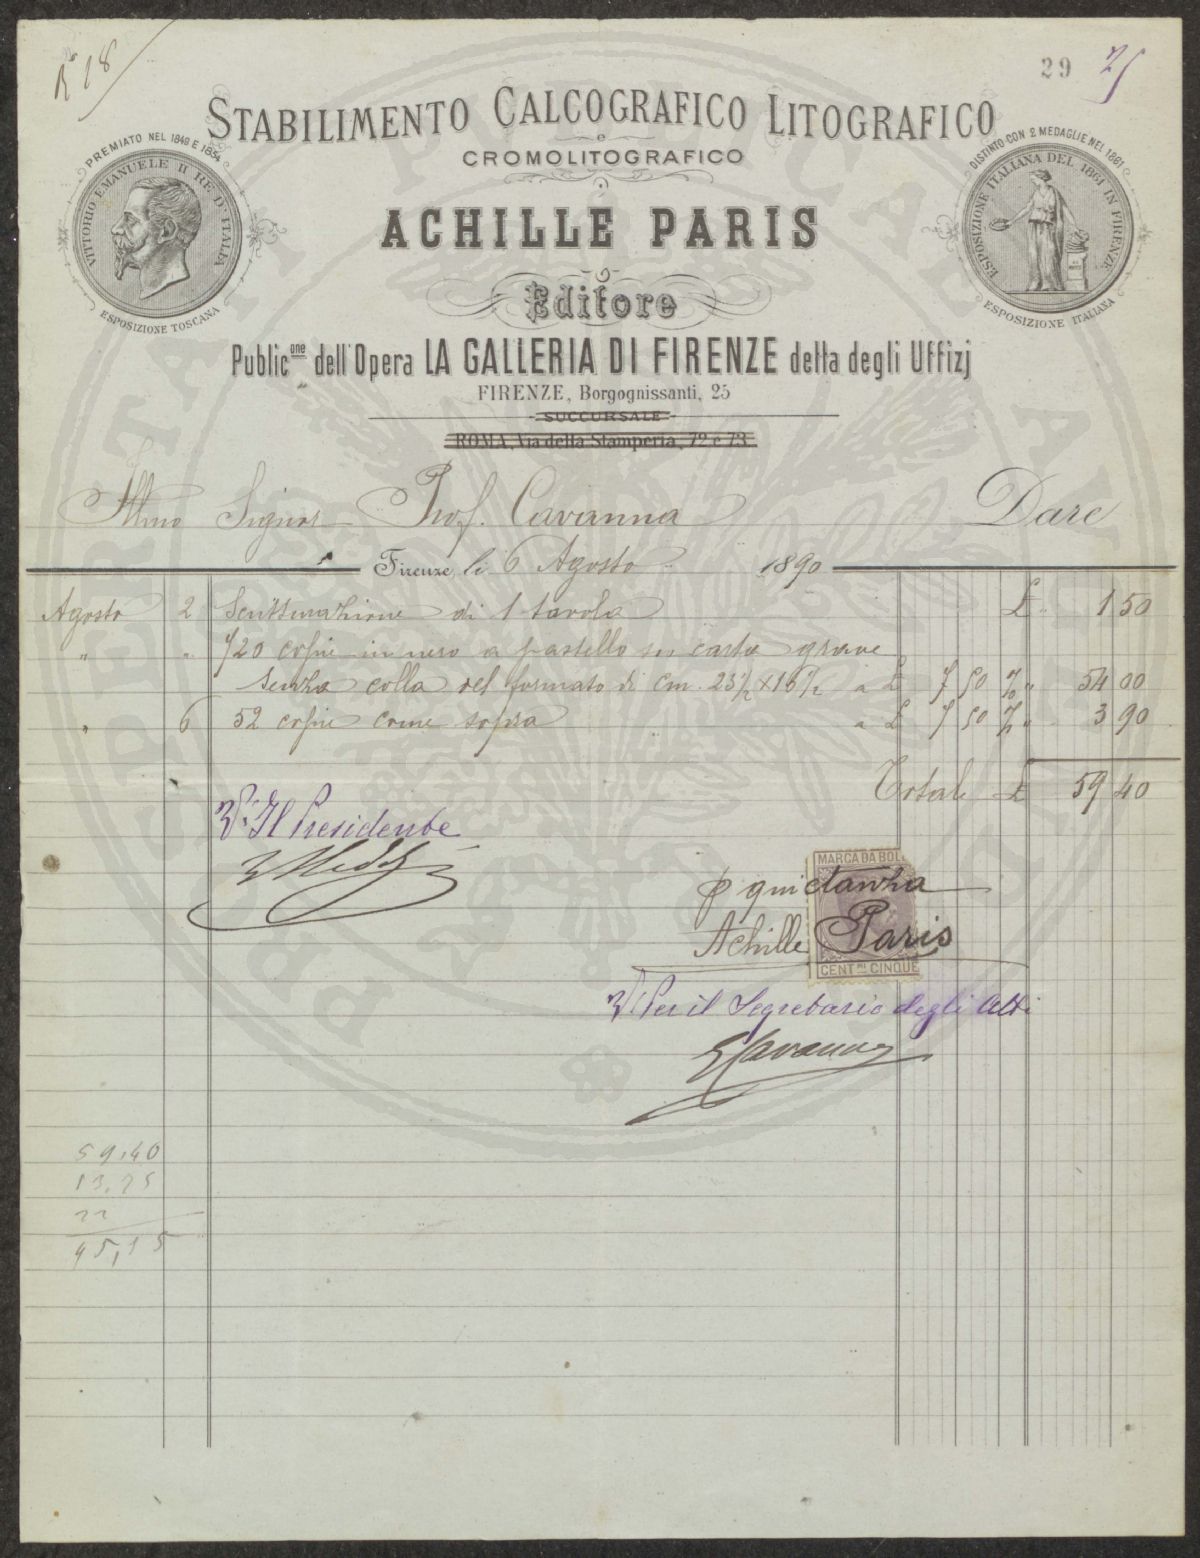 R 18
29 25
STABILIMENTO CALCOGRAFICO LITOGRAFICO
e
CROMOLITOGRAFICO
PREMIATO NEL 1849 E 1854
VITTORIO EMANUELE II RE D'ITALIA
ESPOSIZIONE TOSCANA
DISTINTO CON 2 MEDAGLIE NEL 1861
ESPOSIZIONE ITALIANA DEL 1861 IN FIRENZE
ESPOSIZIONE ITALIANA
ACHILLE PARIS
Editore
Public.one dell'Opera LA GALLERIA DI FIRENZE detta degli Uffizj
FIRENZE, Borgognissanti, 25
SUCCURSALE
ROMA, Via della Stamperia, 72 e 73
Illmo Signor Prof. Cavanna Dare
Firenze, li 6 Agosto 1890
Agosto 2 Scritturazione di 1 tavola £ 1 50
" " 720 copie in nero a pastello su carta grave
senza colla del formato di cm. 23½ × 16½ a £ 7 50 % " 54 00
" 6 52 copie come sopra a £ 7 50 % " 3 90
Totale £ 59 40
V. Il Presidente
MARCA DA BOL
p quietanza
Achille Paris
CENT.MI CINQUE
V. Per il Segretario degli Atti
G Cavanna
59,40
13,25
22
45,15